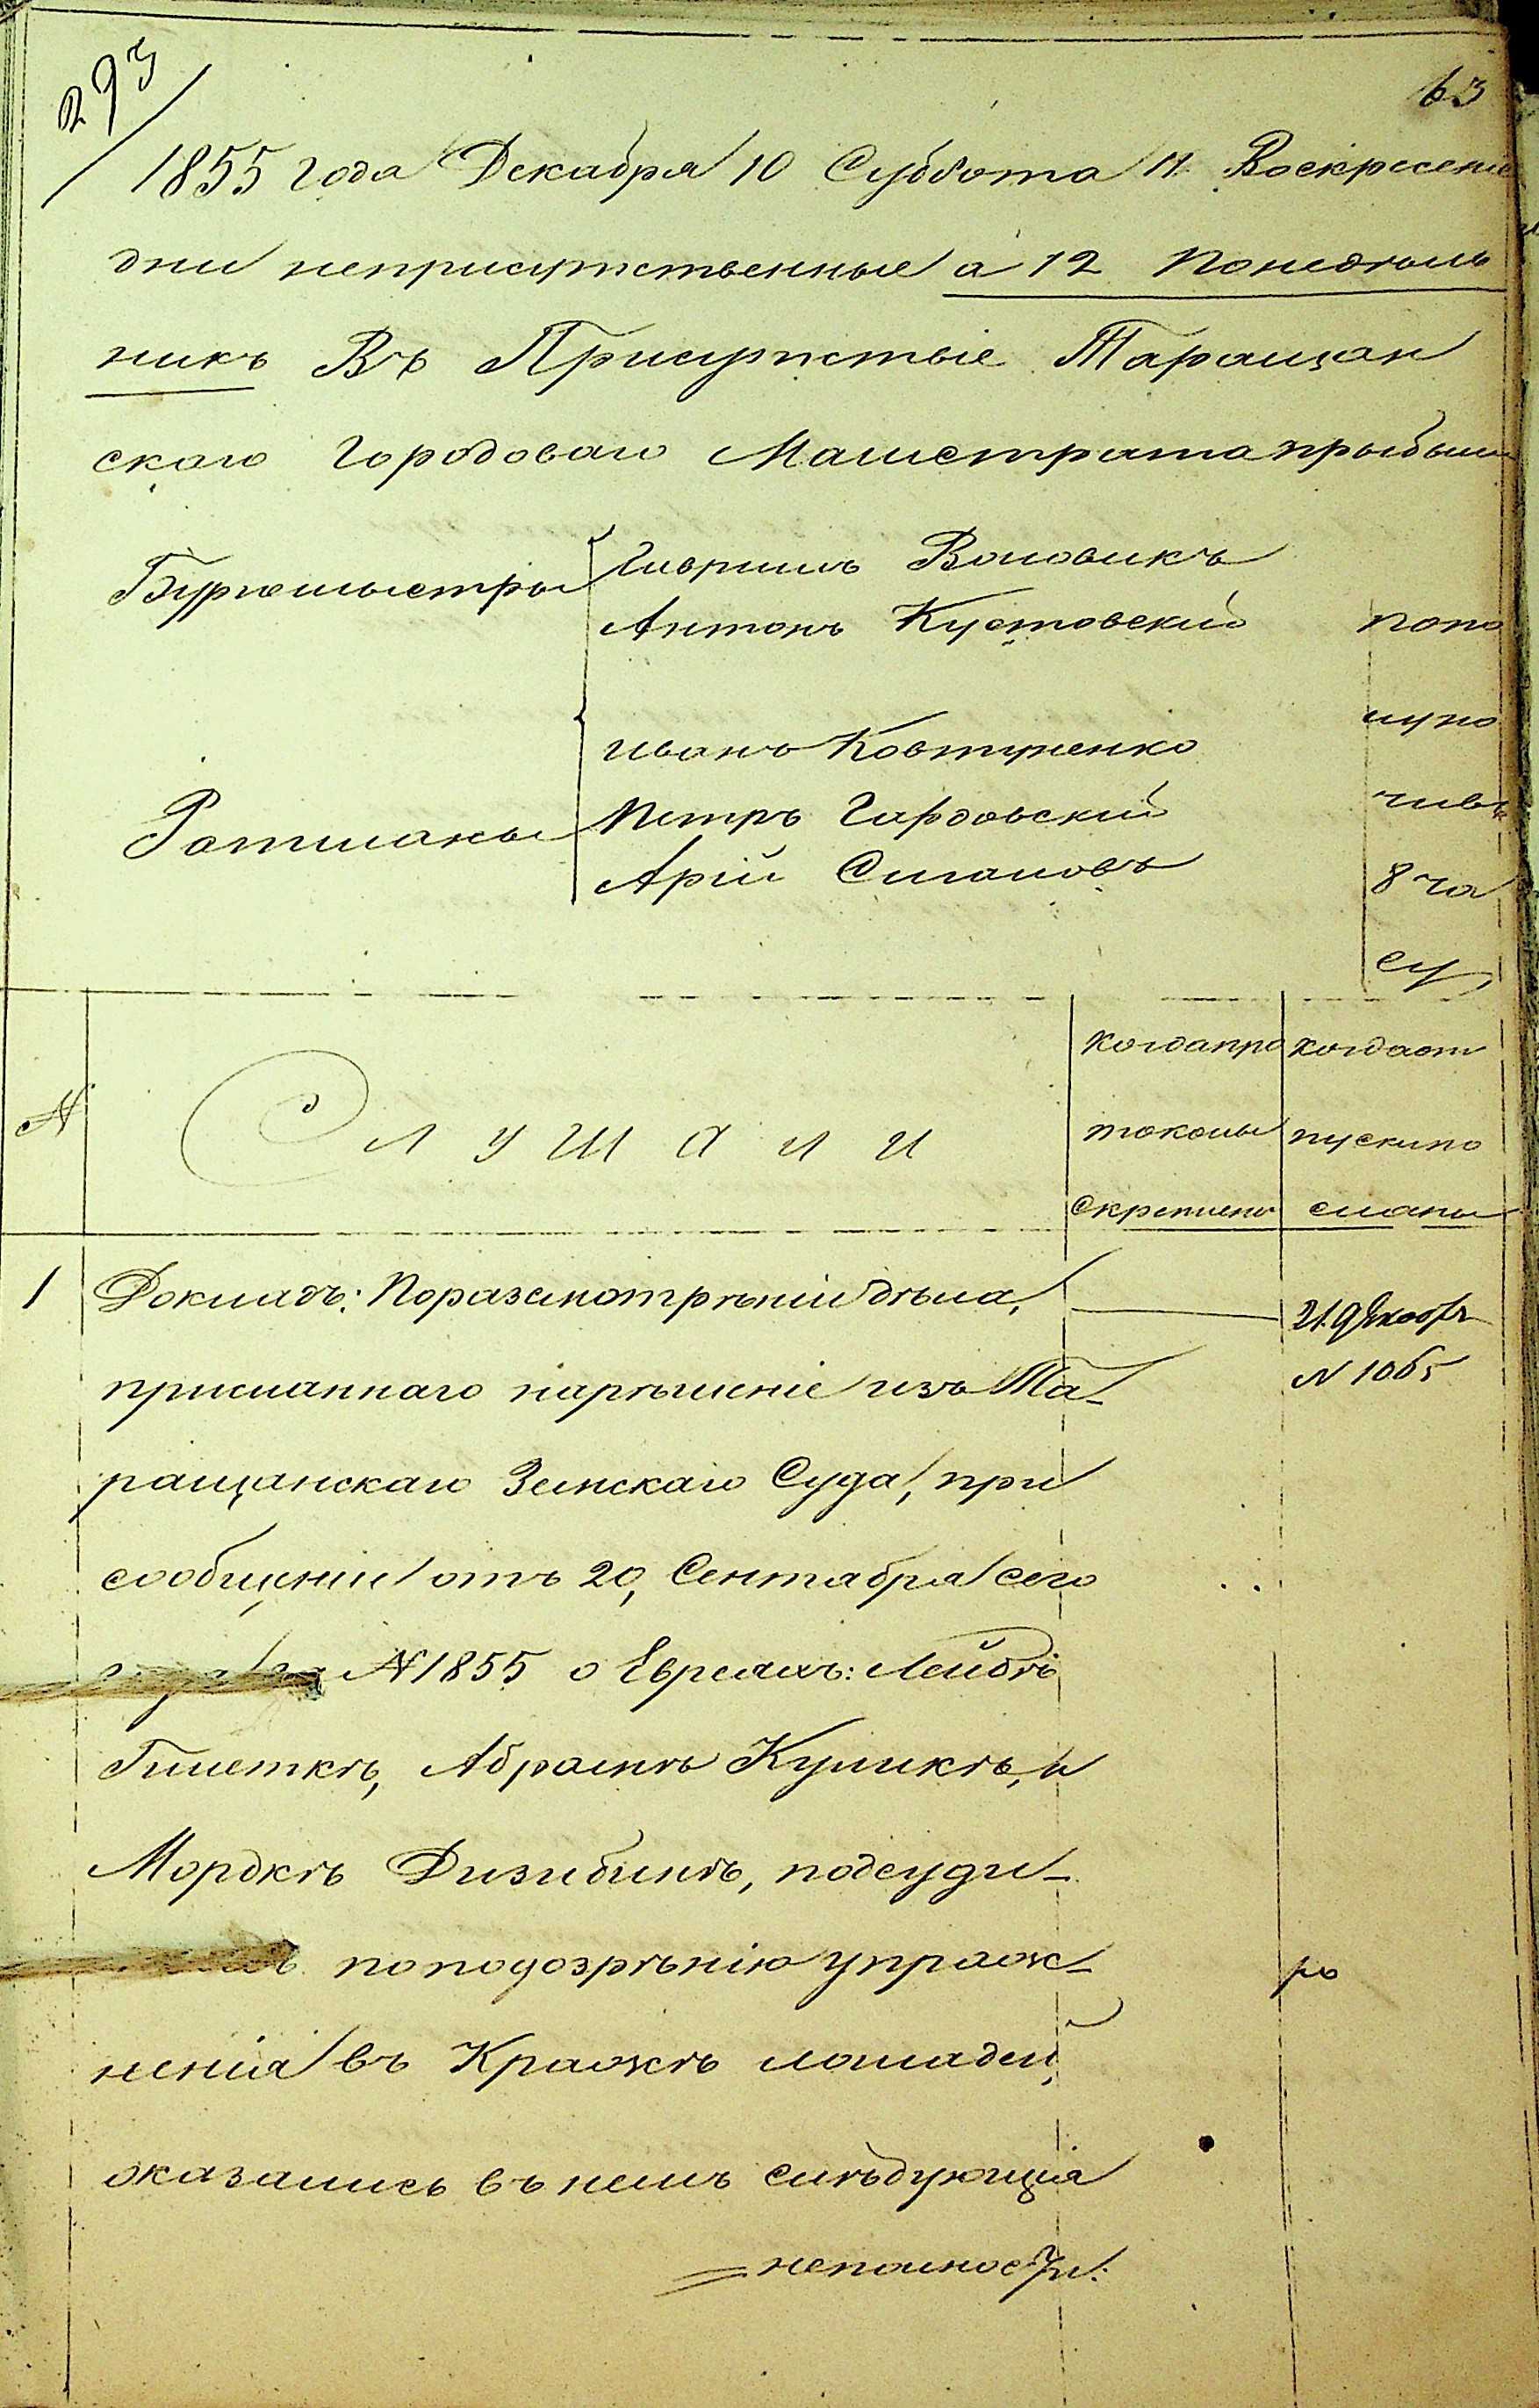 293
63
1855 года Декабря 10 Суббота 11 Воскресение
дни неприсутственные а 12 Понедѣль
никъ Въ Присутствіе Таращан
скаго Городоваго Магистрата прыбыли
Бургомыстры
Гаврилъ Воловикъ
Антонъ Кустовский
Ратманы
Иванъ Ковтуненко
Петръ Гардовский
Арій Сигаловъ
попо
луно
чивъ
8 ча
су,
N
Слушали
когда про
токолы
скреплены
когда от
пуски по
сланы
1
Докладъ: По разсмотрѣніи дѣла,
присланнаго нарѣшеніе изъ Та-
ращанскаго Земскаго Суда, при
сообщеніи отъ 20, Сентября сего
N 1855 о Евреяхъ: Лейбѣ
Гилеткѣ, Абрамѣ Куликѣ, и
Мордкѣ Дизибинѣ, подсуди-
по подозрѣнію упраж-
ненія въ Кражѣ лошадей,
оказались въ немъ слѣдующія
неполности:
21 Декабр
N 1065